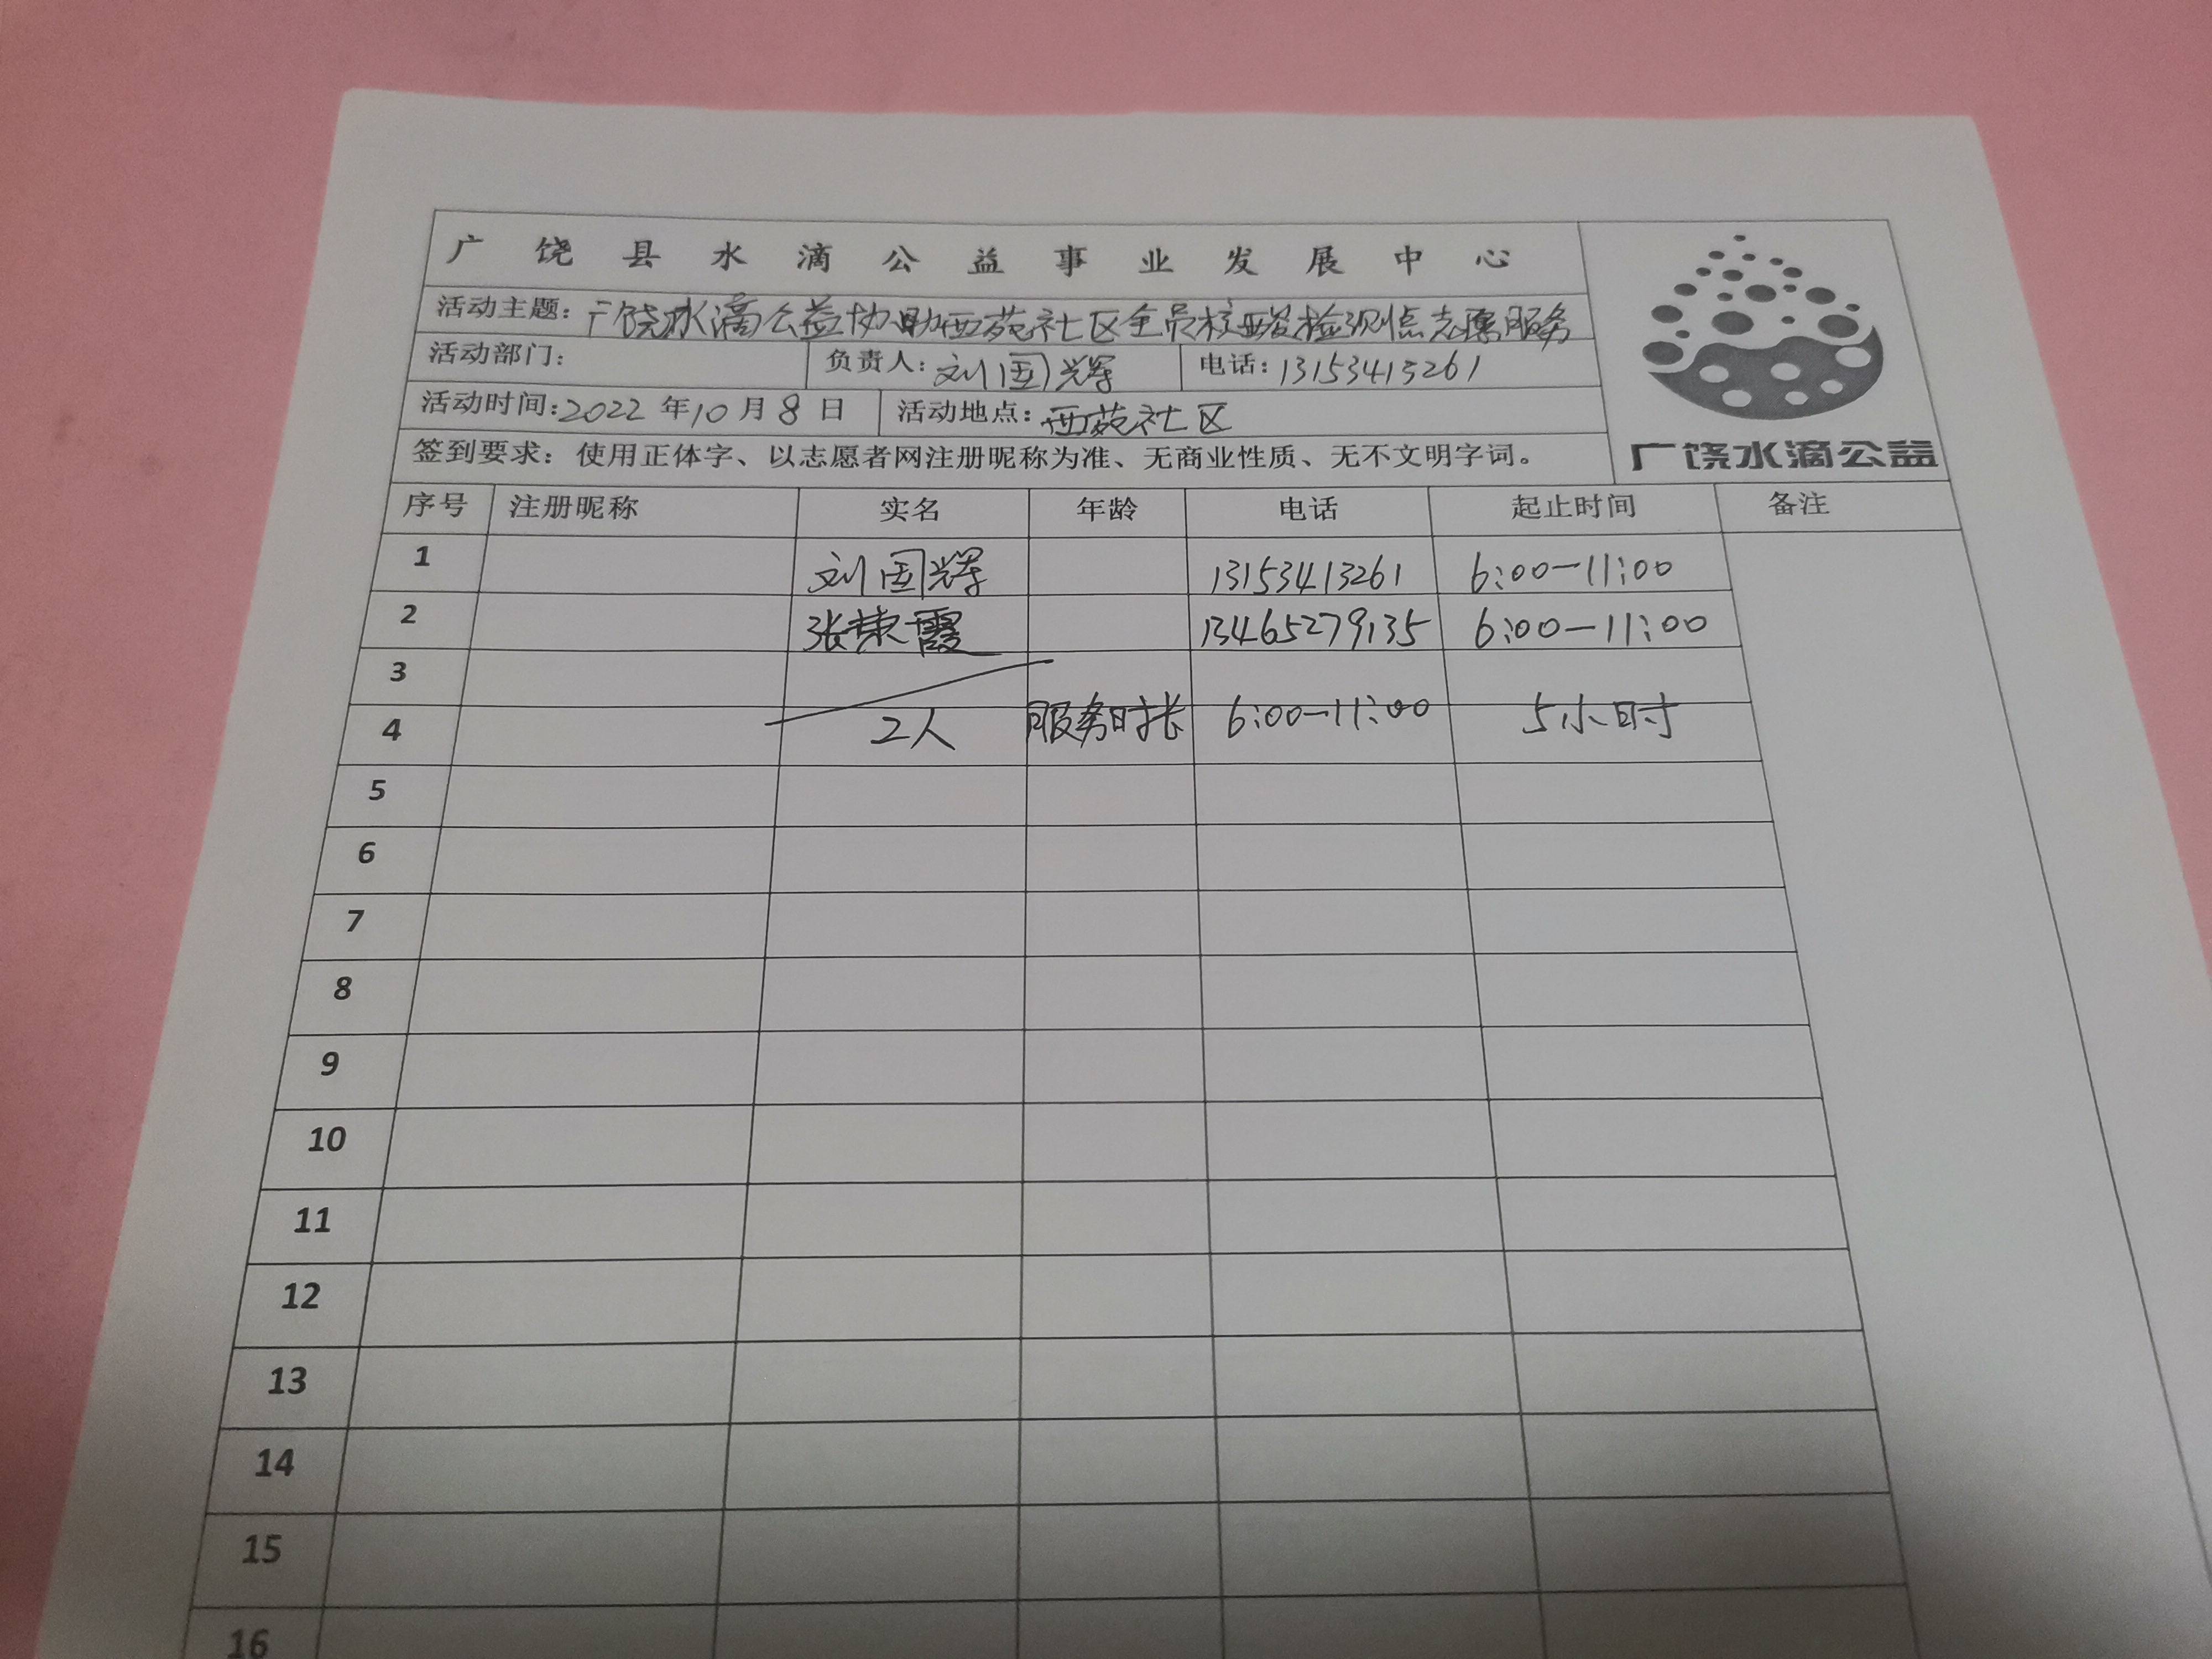 广饶县水滴公益事业发展中心
活动主题：广饶水滴公益协助西苑社区全员核酸检测点志愿服务
活动部门： 负责人：刘国辉 电话：13153413261
活动时间：2022年10月8日 活动地点：西苑社区
签到要求：使用正体字、以志愿者网注册昵称为准、无商业性质、无不文明字词。
广饶水滴公益
序号 注册昵称 实名 年龄 电话 起止时间 备注
1 刘国辉 13153413261 6:00-11:00
2 张荣霞 13465279135 6:00-11:00
3
4 2人 服务时长 6:00-11:00 5小时
5
6
7
8
9
10
11
12
13
14
15
16